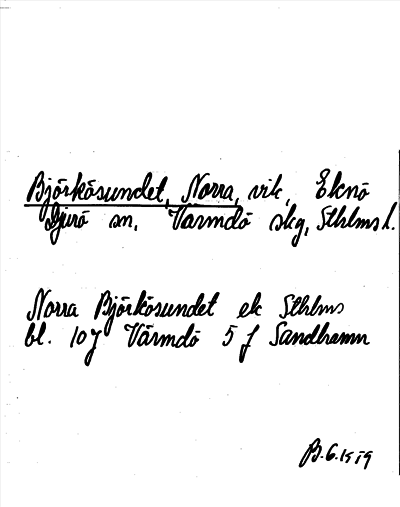 Björkösundet, Norra, vik, Eknö
Djurö sn, Värmdö skg, Sthlms l.
Norra Björkösundet ek Sthlms
bl. 10 J Värmdö 5 f Sandhamn
B.G. 1959